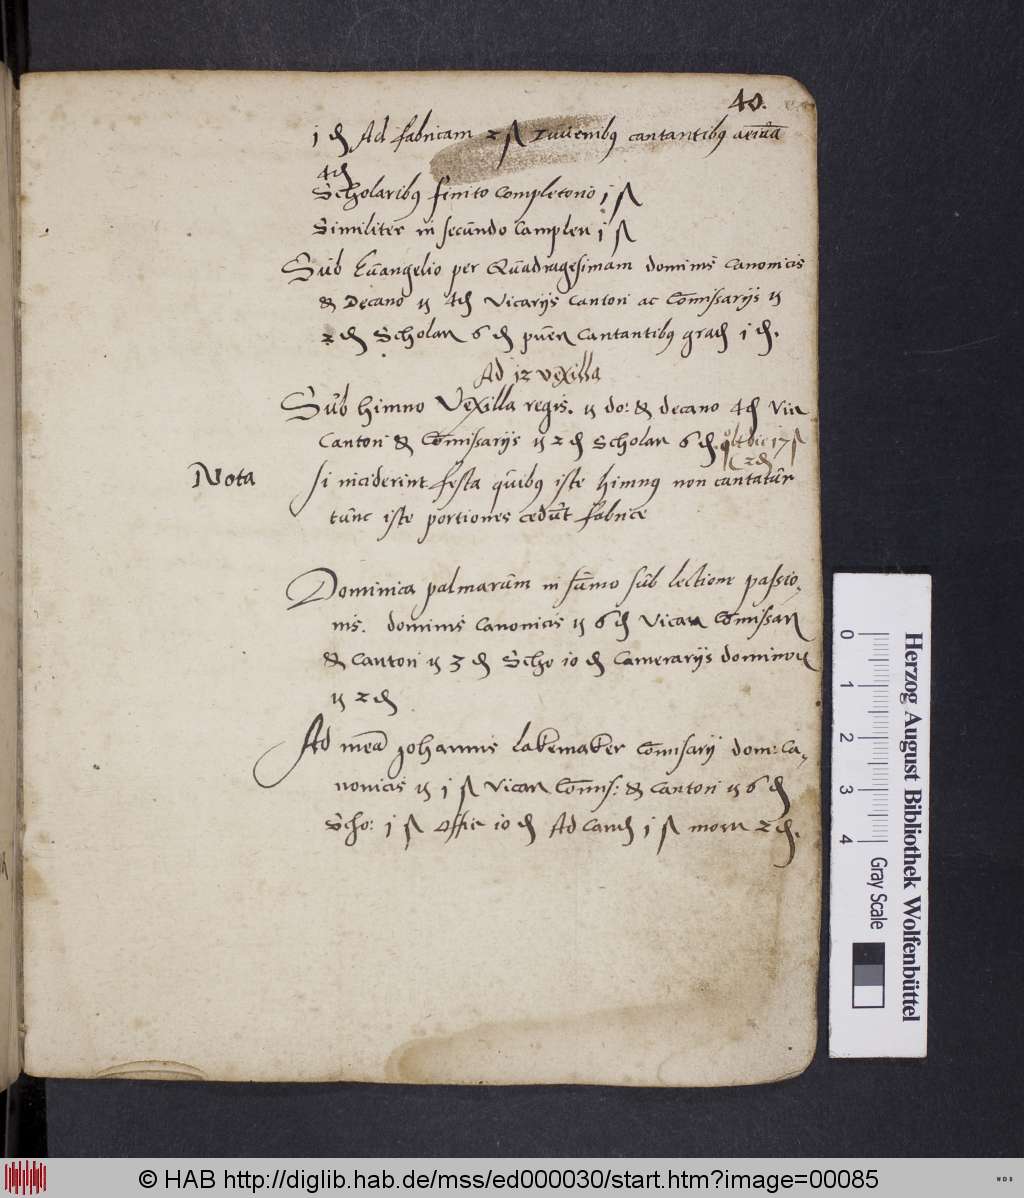 40.
1 ₰ Ad fabricam 2 ß Iuuenibꝰ cantantibꝰ
4 ₰
Scholaribꝰ finito completorio j ß
Similiter in secundo j ß
Sub Euangelio per Quadragesimam dominis Canonicis
& Decano ij 4 ₰ Vicarijs Cantori ac Comissarijs ij
2 ₰ Scholar 6 ₰ puer cantantibꝰ grad 1 ₰.
Ad 12 vexilla
Sub himno Vexilla regis. ij do: & decano 4 ₰ Vic
Cantori & Comissarijs ij 2 ₰ Scholar 6 ₰. 17 ß
2 ₰
Nota Si inciderint festa quibꝰ iste himnꝰ non cantatur
tunc iste portiones cedut fabrice
Dominica palmarum in sumo sub lectione passio,
nis. dominis Canonicis ij 6 ₰ Vicar Comissar
& Cantori ij 3 ₰ Scho io ₰ Camerarijs dominor
ij 2 ₰
Ad Johannis Lakemaker Comisarij dom: Ca,
nonicis ij 1 ß Vicar Comis: & Cantori ij 6 ₰
Scho: 1 ß offic io ₰ Ad Cand 1 ß 2 ₰.
Herzog August Bibliothek Wolfenbüttel
0 1 2 3 4
Gray Scale
© HAB http://diglib.hab.de/mss/ed000030/start.htm?image=00085